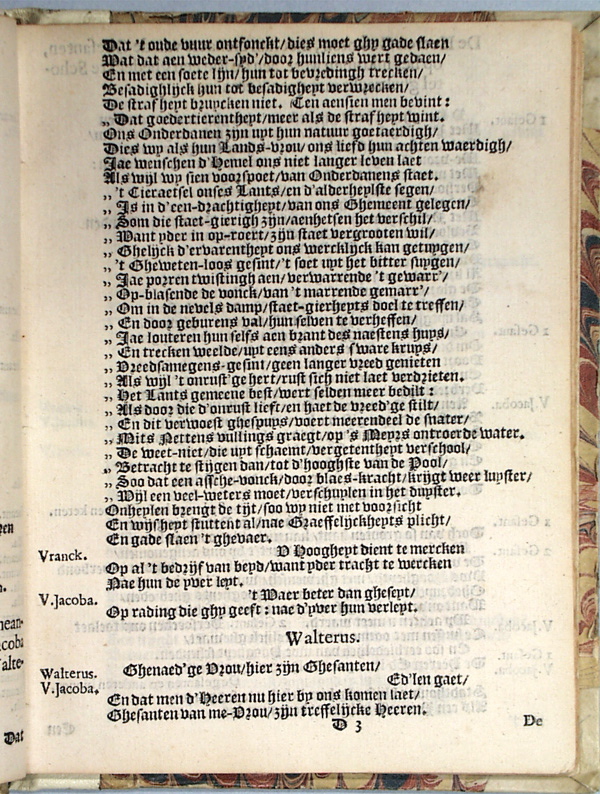 Dat 't oude vuur ontfonckt/dies moet ghy gade slaen
Wat dat aen weder-syd'/door hunliens wert gedaen/
En met een soete lijn/hun tot bevredingh trecken/
Besadighlijck hun tot besadigheyt verwecken/
De strafheyt bruycken niet. Een aensien men bevint:
„ Dat goedertierentheyt/meer als de strafheyt wint.
Ons Onderdanen zijn uyt hun natuur goetaerdigh/
Dies wy als hun Lands-vrou/ons liefd hun achten waerdigh/
Jae wenschen d'Hemel ons niet langer leven laet
Als wijl wy sien voorspoet/van Onderdanens staet.
„ 't Cieraetsel onses Lants/en d'alderheylste segen/
„ Is in d'een-drachtigheyt/van ons Ghemeent gelegen/
„ Som die staet-gierigh zijn/aenhetsen het verschil/
„ Want yder in op-roert/zijn staet vergrooten wil/
„ Ghelijck d'ervarentheyt ons wercklijck kan getuygen/
„ 't Gheweten-loos gesint/'t soet uyt het bitter suygen/
„ Jae porren twistingh aen/verwarrende 't gewarr'/
„ Op-blasende de vonck/van 't marrende gemarr'/
„ Om in de nevels damp/staet-gierheyts doel te treffen/
„ En door geburens val/hun selven te verheffen/
„ Jae louteren hun selfs aen brant des naestens huys/
„ En trecken weelde/uyt eens anders sware kruys/
„ Vreedsamegens-gesint/geen langer vreed genieten
„ Als wijl 't onrust'ge hert/rust sich niet laet verdrieten.
„ Het Lants gemeene best/wert selden meer bedilt:
„ Als door die d'onrust lieft/en haet de vreed'ge stilt/
„ En dit verwoest ghespuys/voert meerendeel de snater/
„ Mits Nettens vullings graegt/op 's Meyrs ontroerde water.
„ De weet-niet/die uyt schaemt/vergetentheyt verschool/
„ Betracht te stijgen dan/tot d'hooghste van de Pool/
„ Soo dat een assche-vonck/door blaes-kracht/krijgt weer luyster/
„ Wijl een veel-weters moet/verschuylen in het duyster.
Onheylen brengt de tijt/soo wy niet met voorsicht
En wijsheyt stuttent al/nae Graeffelijckheyts plicht/
En gade slaen 't ghevaer.
Vranck. V Hoogheyt dient te mercken
Op al 't bedrijf van beyd/want yder tracht te wercken
Nae hun de yver leyt.
V.Jacoba. 't Waer beter dan gheseyt/
Op rading die ghy geeft: nae d'yver hun verleyt.
Walterus.
Walterus. Ghenaed'ge Vrou/hier zijn Ghesanten/
V.Jacoba. Ed'len gaet/
En dat men d'Heeren nu hier by ons komen laet/
Ghesanten van me-Vrou/zijn treffelijcke Heeren.
D 3 De